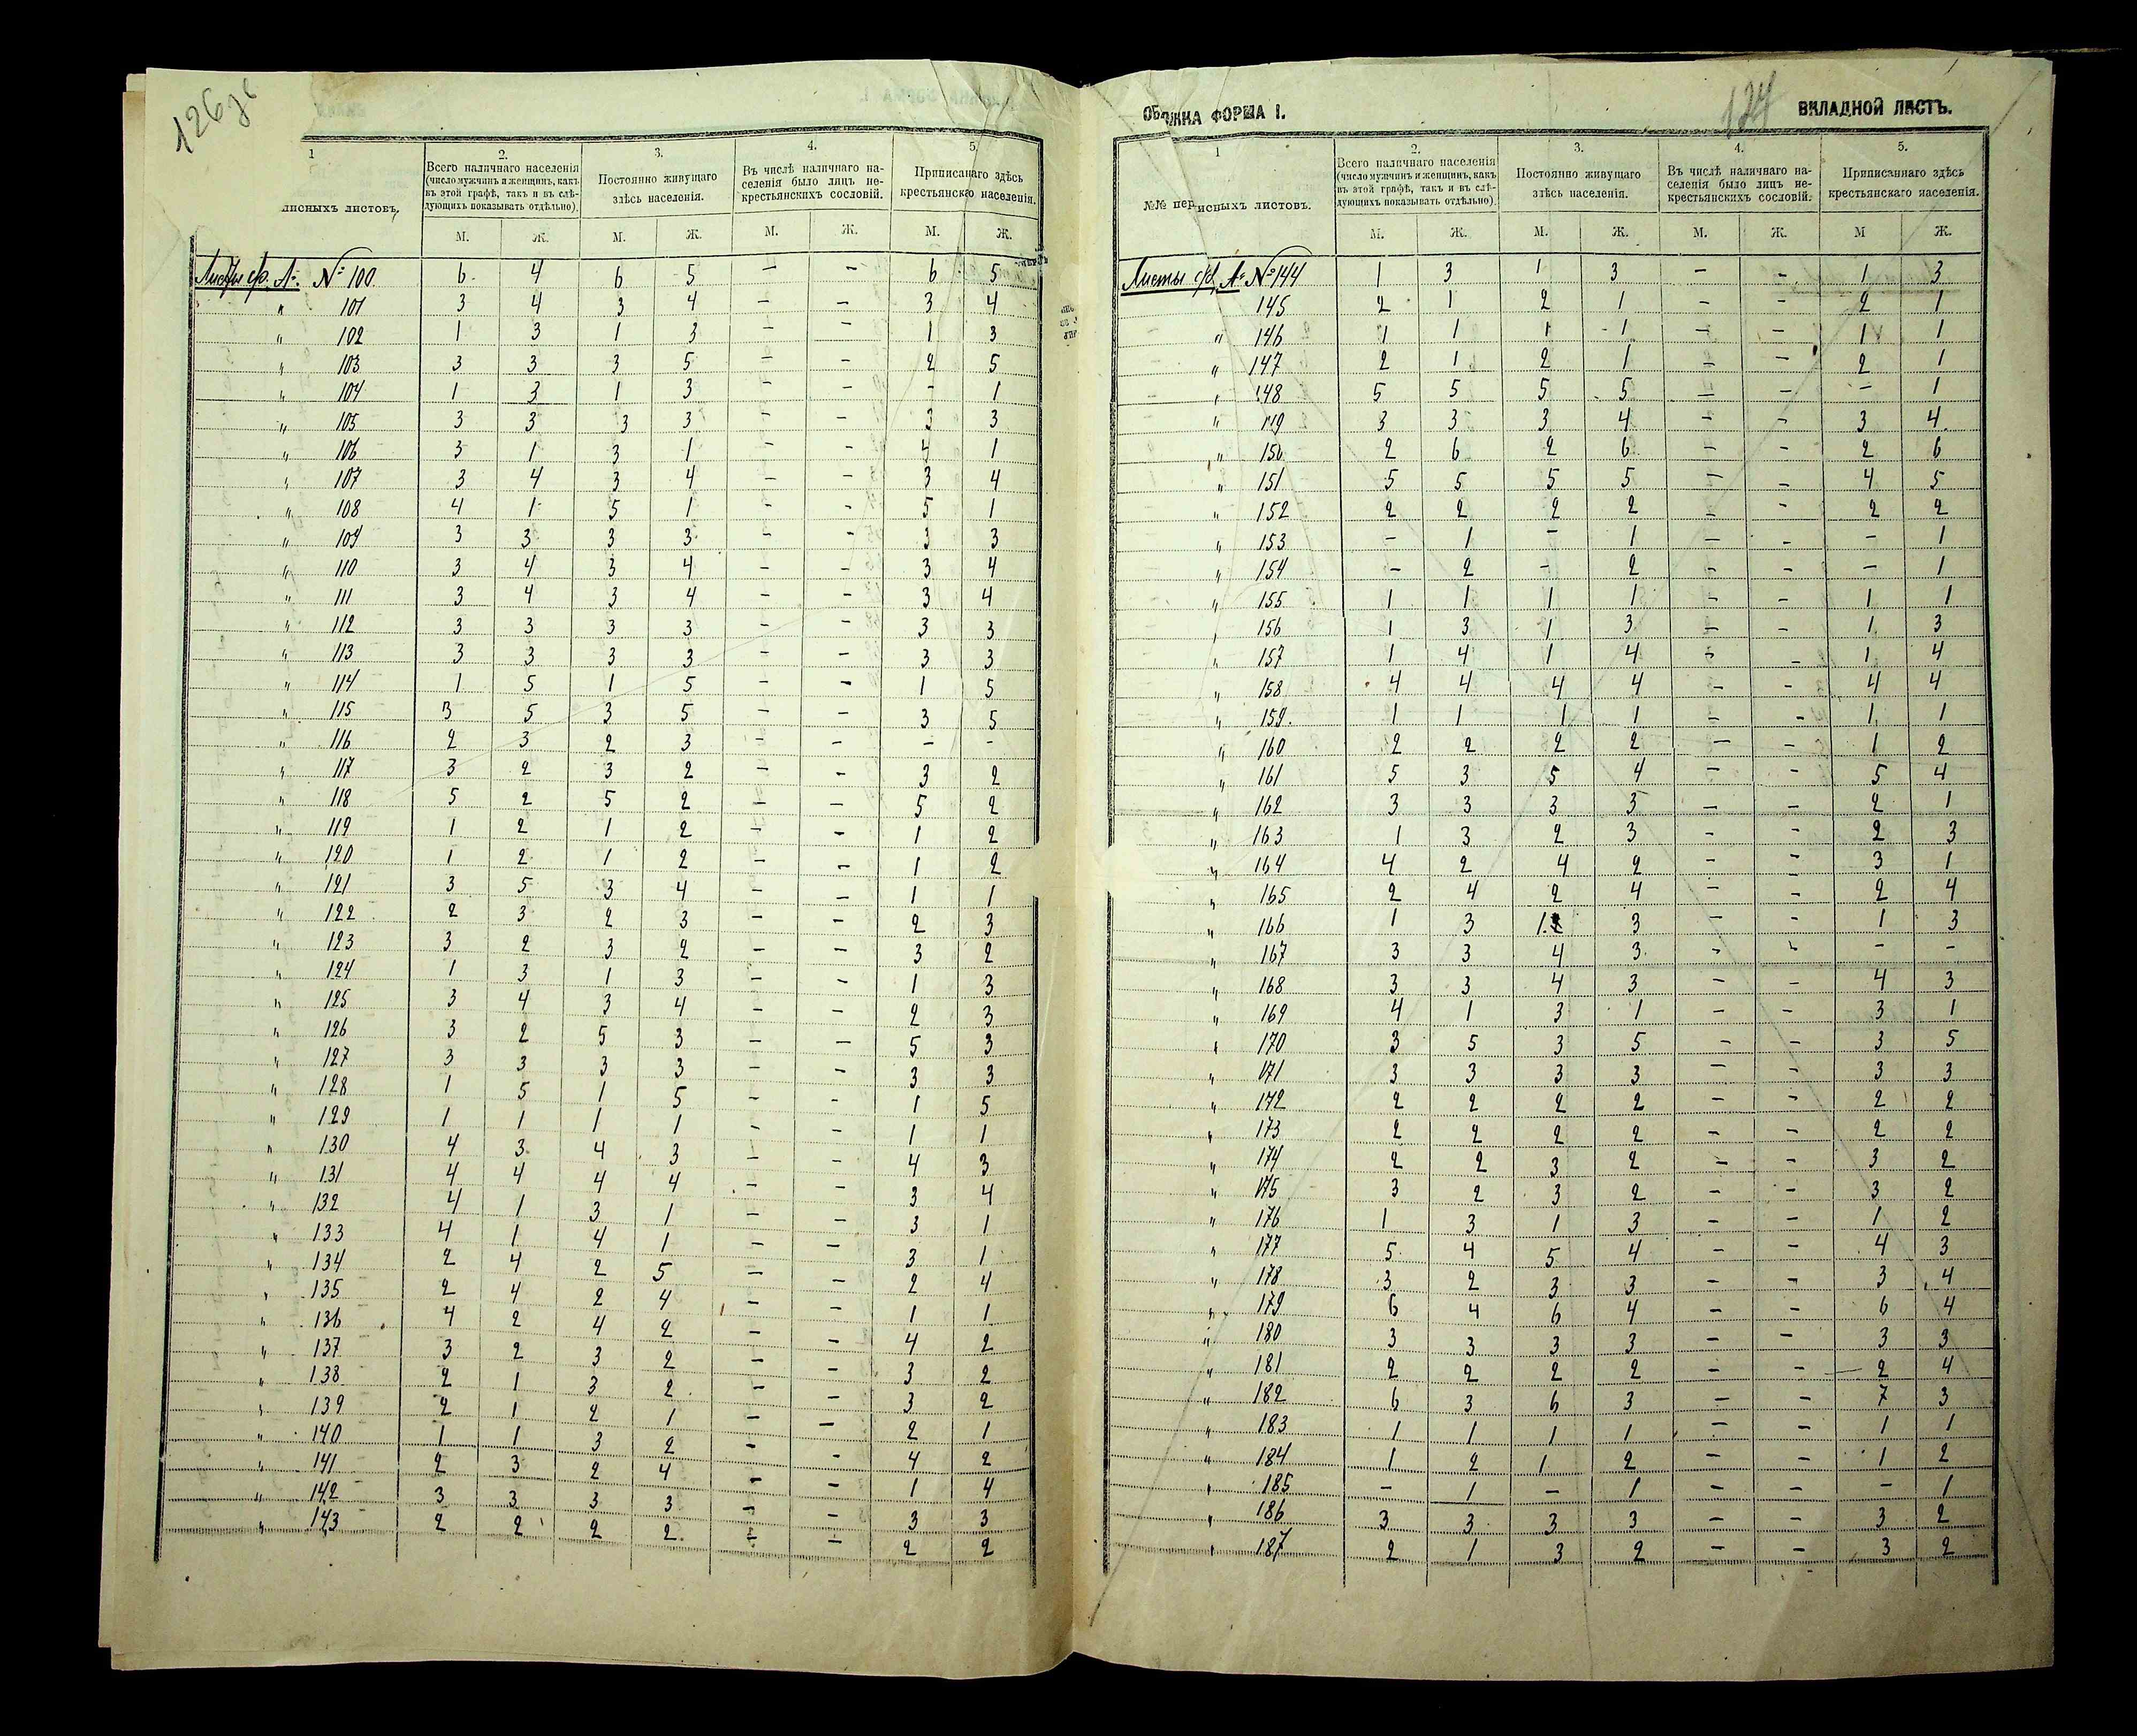 126 об
1 2. 3. 4. 5
исныхъ листовъ. Всего наличнаго населенія (число мужчинъ и женщинъ, какъ въ этой графѣ, такъ и въ слѣдующихъ показывать отдѣльно). Постоянно живущаго здѣсь населенія. Въ числѣ наличнаго населенія было лицъ некрестьянскихъ сословій. Приписанаго здѣсь крестьянскго населенія.
М. Ж. М. Ж. М. Ж. М. Ж.
Листы ф. А. № 100 6 4 6 5 – – 6 5
" 101 3 4 3 4 – – 3 4
" 102 1 3 1 3 – – 1 3
" 103 3 3 3 5 – – 2 5
" 104 1 3 1 3 – – – 1
" 105 3 3 3 3 – – 3 3
" 106 3 1 3 1 – – 4 1
" 107 3 4 3 4 – – 3 4
" 108 4 1 5 1 – – 5 1
" 109 3 3 3 3 – – 3 3
" 110 3 4 3 4 – – 3 4
" 111 3 4 3 4 – – 3 4
" 112 3 3 3 3 – – 3 3
" 113 3 3 3 3 – – 3 3
" 114 1 5 1 5 – – 1 5
" 115 3 5 3 5 – – 3 5
" 116 2 3 2 3 – – – –
" 117 3 2 3 2 – – 3 2
" 118 5 2 5 2 – – 5 2
" 119 1 2 1 2 – – 1 2
" 120 1 2 1 2 – – 1 2
" 121 3 5 3 4 – – 1 1
" 122 2 3 2 3 – – 2 3
" 123 3 2 3 2 – – 3 2
" 124 1 3 1 3 – – 1 3
" 125 3 4 3 4 – – 2 3
" 126 3 2 5 3 – – 5 3
" 127 3 3 3 3 – – 3 3
" 128 1 5 1 5 – – 1 5
" 129 1 1 1 1 – – 1 1
" 130 4 3 4 3 – – 4 3
" 131 4 4 4 4 – – 3 4
" 132 4 1 3 1 – – 3 1
" 133 4 1 4 1 – – 3 1
" 134 2 4 2 5 – – 2 4
" 135 2 4 2 4 – – 1 1
" 136 4 2 4 2 – – 4 2
" 137 3 2 3 2 – – 3 2
" 138 2 1 3 2 – – 3 2
" 139 2 1 2 1 – – 2 1
" 140 1 1 3 2 – – 4 2
" 141 2 3 2 4 – – 1 4
" 142 3 3 3 3 – – 3 3
" 143 2 2 2 2 – – 2 2
ОБ ЖКА ФОРМА I. 127 ВКЛАДНОЙ ЛИСТЪ.
1 2. 3. 4. 5.
№№ пер исныхъ листовъ. Всего наличнаго населенія (число мужчинъ и женщинъ, какъ въ этой графѣ, такъ и въ слѣдующихъ показывать отдѣльно). Постоянно живущаго здѣсь населенія. Въ числѣ наличнаго населенія было лицъ некрестьянскихъ сословій. Приписаннаго здѣсь крестьянскаго населенія.
М. Ж. М. Ж. М. Ж. М Ж.
Листы ф. А. № 144 1 3 1 3 – – 1 3
145 2 1 2 1 – – 2 1
" 146 1 1 1 1 – – 1 1
" 147 2 1 2 1 – – 2 1
" 148 5 5 5 5 – – – 1
" 149 3 3 3 4 – – 3 4
" 150 2 6 2 6 – – 2 6
" 151 5 5 5 5 – – 4 5
" 152 2 2 2 2 – – 2 2
" 153 – 1 – 1 – – – 1
" 154 – 2 – 2 – – – 1
" 155 1 1 1 1 – – 1 1
" 156 1 3 1 3 – – 1 3
" 157 1 4 1 4 – – 1 4
" 158 4 4 4 4 – – 4 4
" 159. 1 1 1 1 – – 1 1
" 160 2 2 2 2 – – 1 2
" 161 5 3 5 4 – – 5 4
" 162 3 3 3 3 – – 2 1
" 163 1 3 2 3 – – 2 3
" 164 4 2 4 2 – – 3 1
" 165 2 4 2 4 – – 2 4
" 166 1 3 1 3 – – 1 3
" 167 3 3 4 3 – – – –
" 168 3 3 4 3 – – 4 3
" 169 4 1 3 1 – – 3 1
" 170 3 5 3 5 – – 3 5
" 171 3 3 3 3 – – 3 3
" 172 2 2 2 2 – – 2 2
" 173 2 2 2 2 – – 2 2
" 174 2 2 3 2 – – 3 2
" 175 3 2 3 2 – – 3 2
" 176 1 3 1 3 – – 1 2
" 177 5 4 5 4 – – 4 3
" 178 3 2 3 3 – – 3 4
" 179 6 4 6 4 – – 6 4
" 180 3 3 3 3 – – 3 3
" 181 2 2 2 2 – – 2 4
" 182 6 3 6 3 – – 7 3
" 183 1 1 1 1 – – 1 1
" 184 1 2 1 2 – – 1 2
" 185 – 1 – 1 – – – 1
" 186 3 3 3 3 – – 3 2
" 187 2 1 3 2 – – 3 2